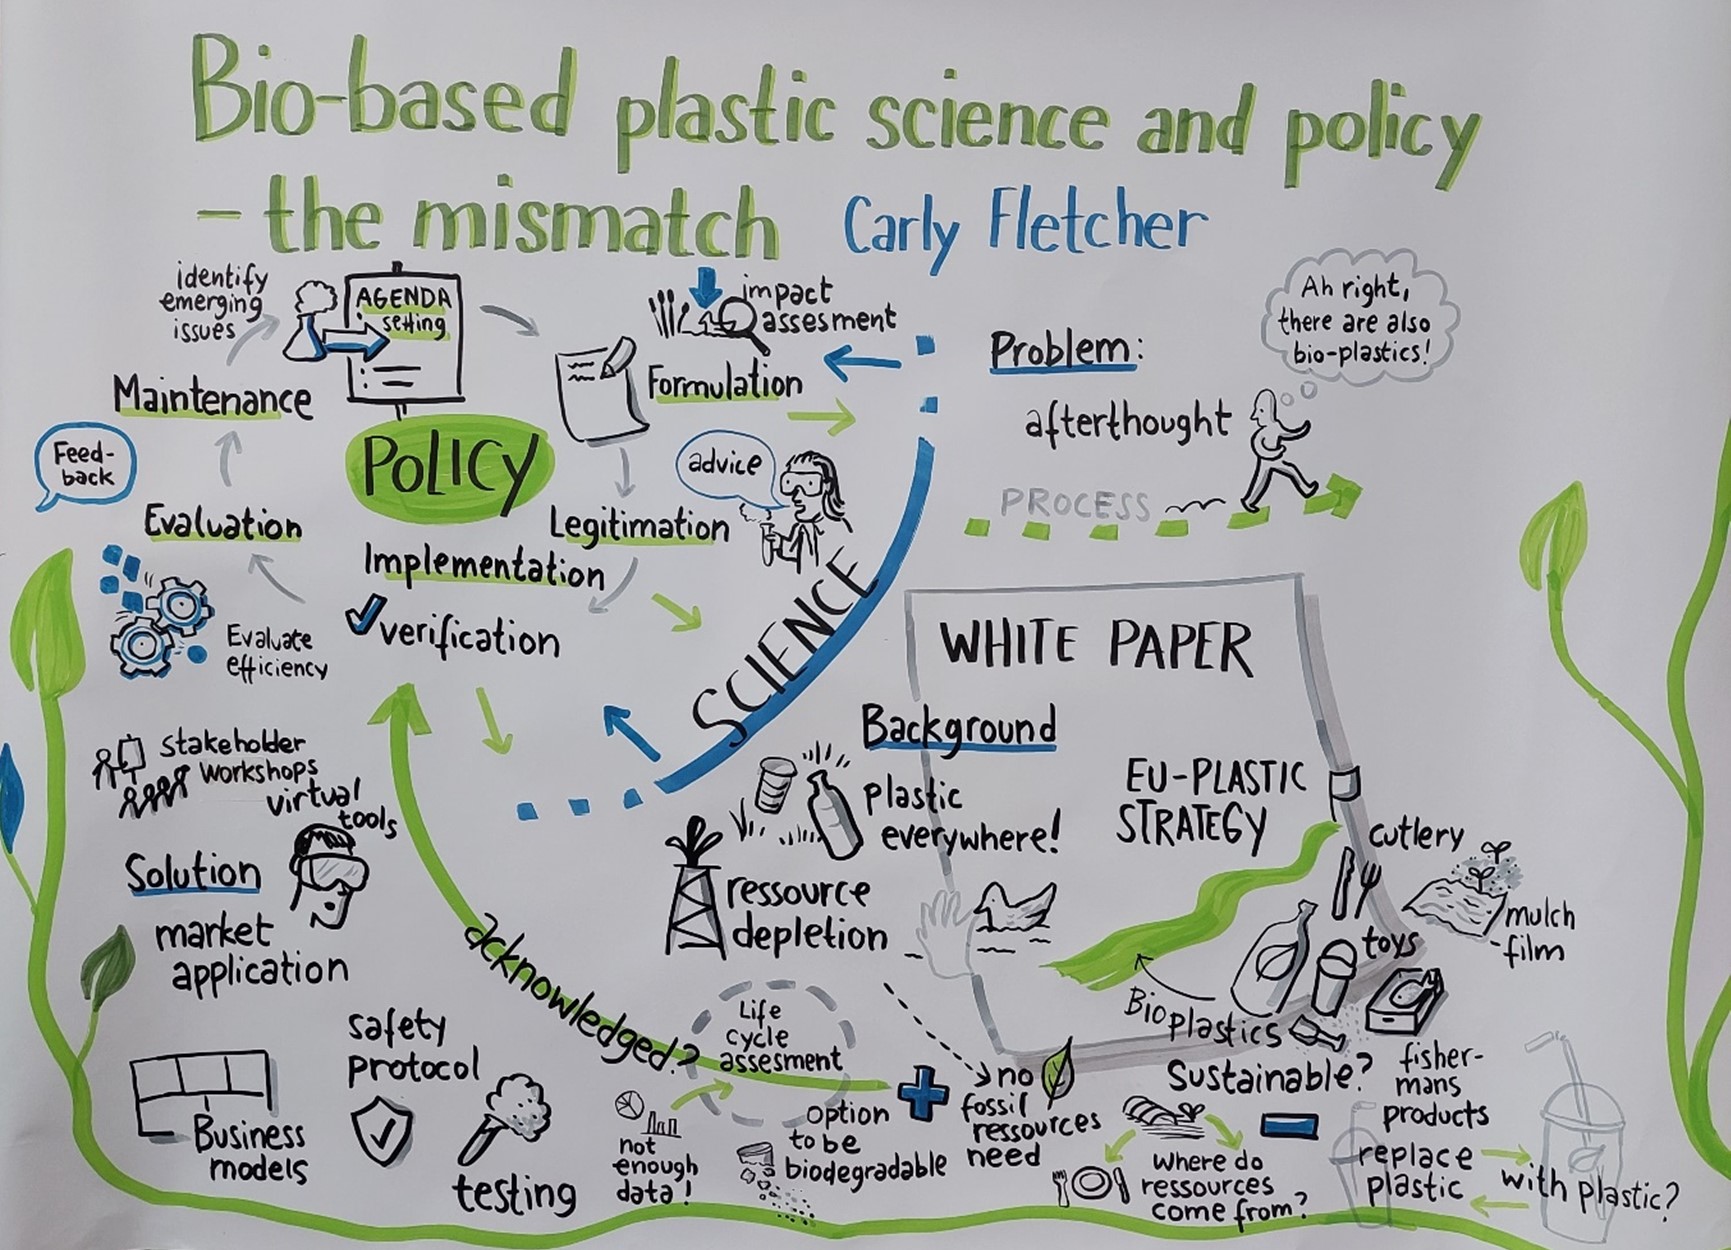 Bio-based plastic science and policy
- the mismatch Carly Fletcher
identify
emerging
issues
AGENDA
setting
impact
assesment
Formulation
Maintenance
POLICY
Feed-
back
Evaluation
advice
Legitimation
Implementation
verification
Evaluate
efficiency
SCIENCE
Problem:
afterthought
Ah right,
there are also
bio-plastics!
PROCESS
WHITE PAPER
Background
plastic
everywhere!
ressource
depletion
EU-PLASTIC
STRATEGY
cutlery
mulch
-film
toys
Bioplastics
fisher-
mans
products
stakeholder
workshops
virtual
tools
Solution
market
application
safety
protocol
Business
models
testing
acknowledged?
Life
cycle
assesment
not
enough
data!
option
to be
biodegradable
no
fossil
ressources
need
Sustainable?
where do
ressources
come from?
replace
plastic
with plastic?